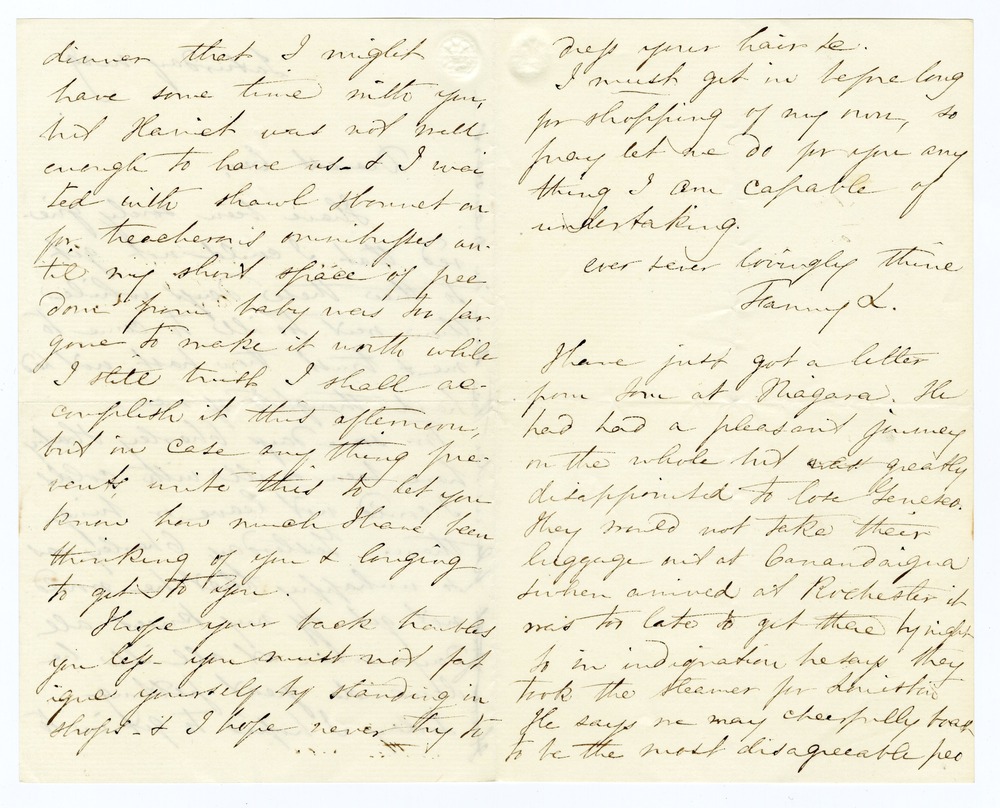 dinner that I might
have some time with you,
but Harriet was not well
enough to have us - & I wai
ted with shawl & bonnet on
for omnibusses un-
til my short space of free
dom from baby was too far
gone to make it worth while
I still trust I shall ac-
complish it this afternoon,
but in case any thing pre-
vents, write this to let you
know how much I have been
thinking of you & longing
to get to you.
I hope your back troubles
you less - you must not fat
igue yourself by standing in
shops - & I hope never try to
dress your hair &c.
I must get in before long
for shopping of my own, so
pray let me do for you any
thing I am capable of
undertaking.
ever & ever lovingly thine
Fanny L.
I have just got a letter
from Tom at Niagara. He
had had a pleasant journey
on the whole but was greatly
disappointed to lose Geneseo.
They would not take their
luggage out at Canandaigua
& when arrived at Rochester it
was too late to get there by night
So in indignation he says they
took the steamer for Lewiston
He says we may cheerfully boast
to be the most disagreeable peo